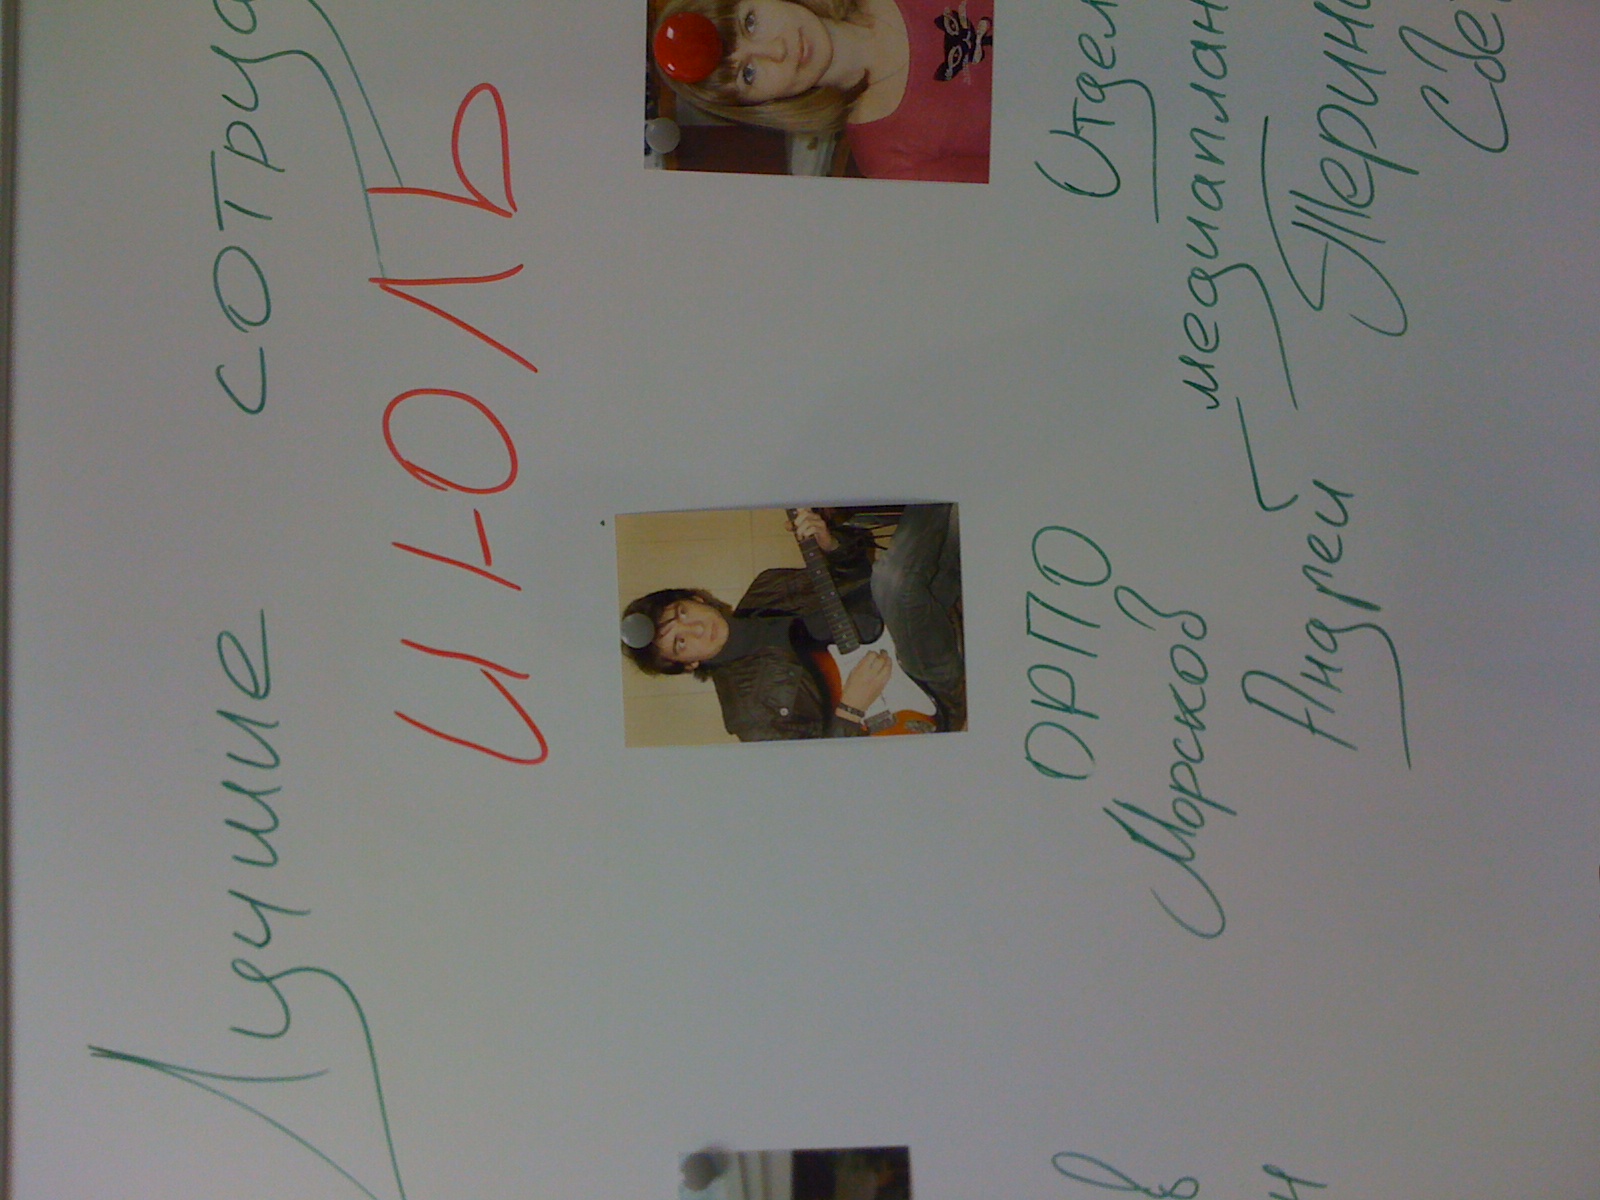 Лучшие сотруд
ИЮЛЬ
ОРПО
Морсков
Андрей
в
н
Отдел
медиаплан
Терин
Све